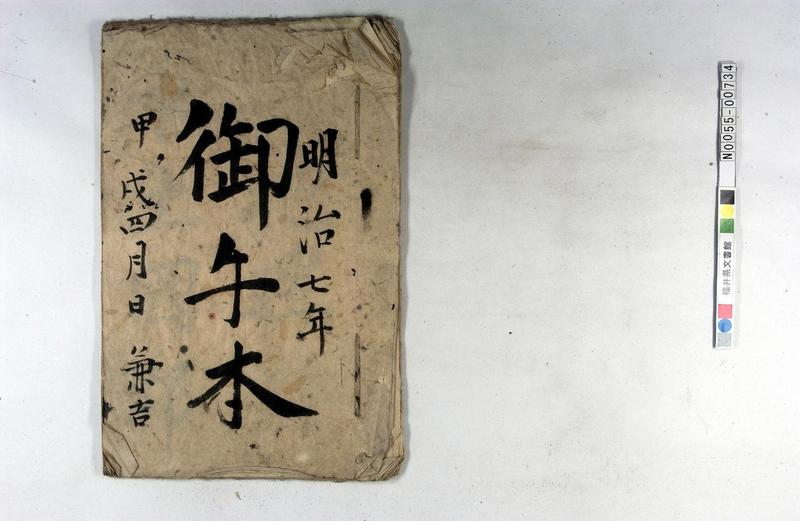 明治七年
御手本
甲戌四月日 兼吉
N0055-00734
福井県文書館